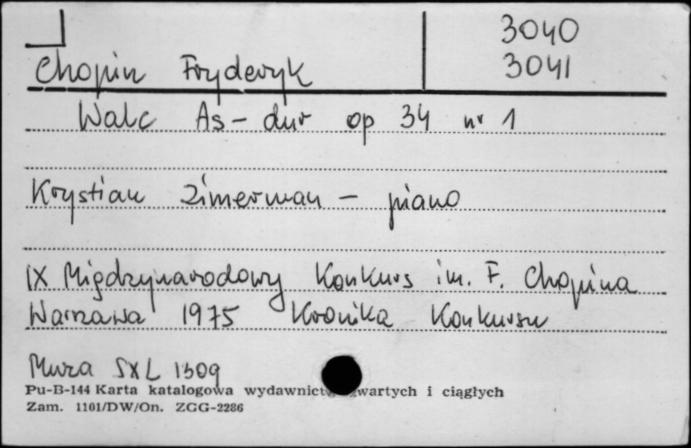 3040
Chopin Fryderyk 3041
Walc As-dur op 34 nr 1
Krystian Zimerman - piano
IX Międzynarodowy Konkurs im. F. Chopina
Warszawa 1975 Kronika Konkursu
Muza SXL 1309
Pu-B-144 Karta katalogowa wydawnictw zwartych i ciągłych
Zam. 1101/DW/On. ZGG-2286